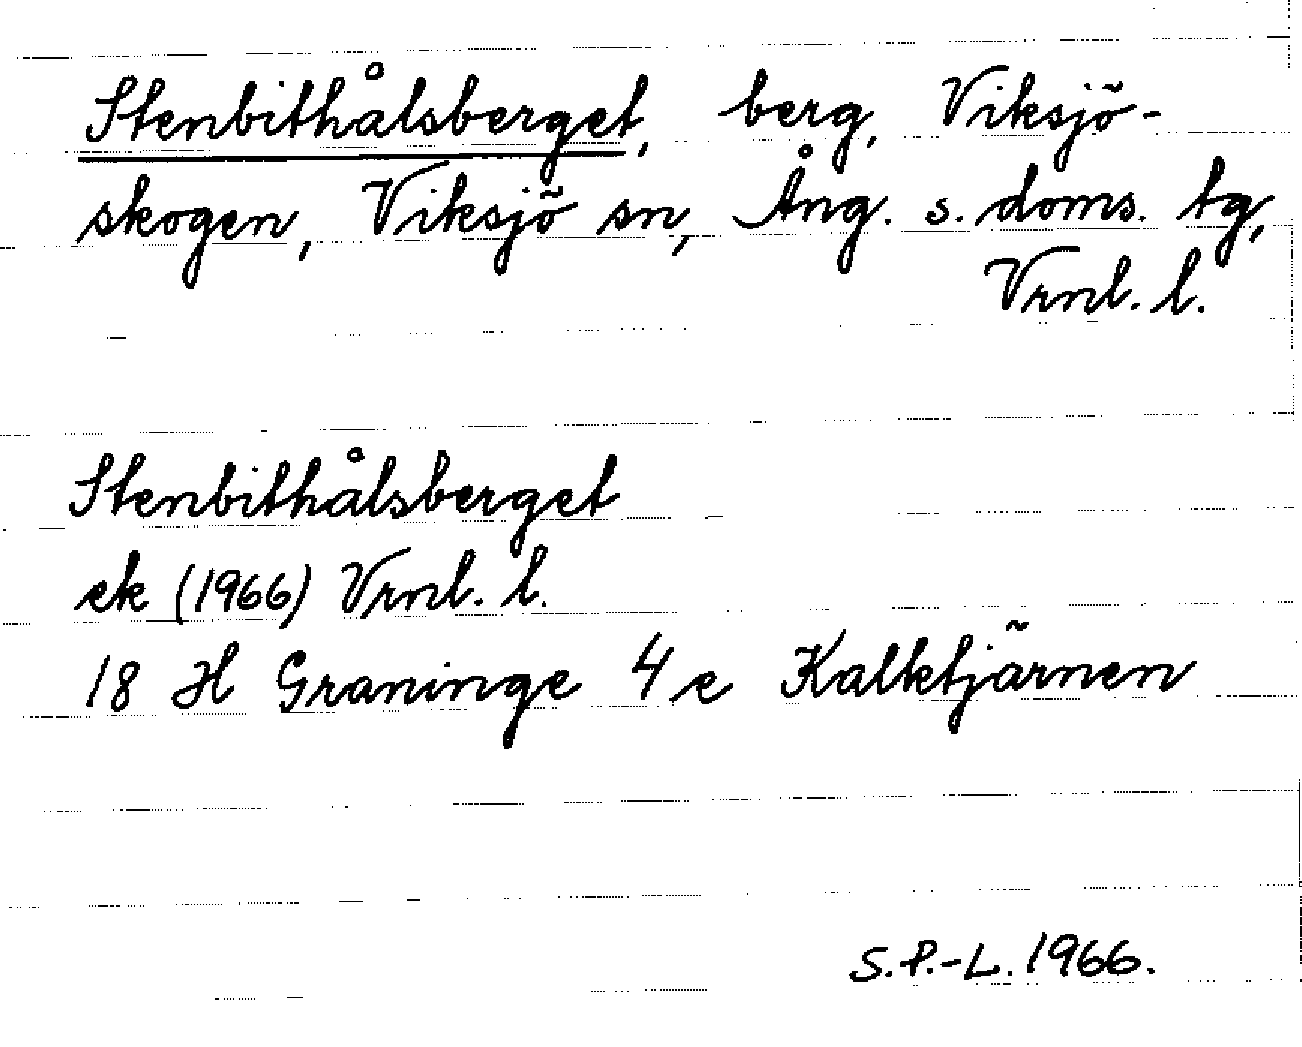 Stenbithålsberget, berg, Viksjö-
skogen, Viksjö sn, Ång. s. doms. tg,
Vrnl. l.
Stenbithålsberget
ek (1966) Vrnl. l.
18 H Graninge 4 e Kalktjärnen
S.P.-L. 1966.